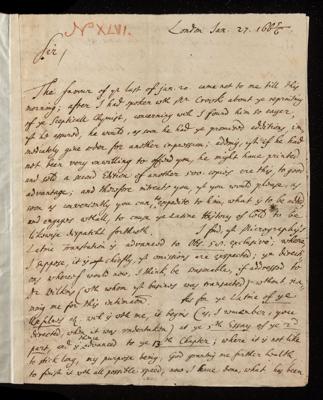 No XLVI.
London Jan. 27. 166 5/6
Sir,
The favour of yr last of Jan. 20. came not to me till this
morning; after I had spoken wth Mr Crook about ye reprinting
of ye Scepticall Chymist, concerning wch I found him so eager
yt he assured, he would, as soon he had ye promised additions, im-
mediately give order for another impression; adding, yt if he had
not been very unwilling to offend you, he might have printed
and sold a second Edition of another 500. copies ere this, to good
advantage; and therefore intreats you, yt you would please, as
soon as conveniently you can, expedite to him, what is to be added
and engages withall, to cause ye Latine History of Cold to be
likewise dispatch't forthwith.
I find, ye Micrography's
Latine Translation is advanced to Obs. 50. exclusive; where,
I suppose, it is chiefly, ye omissions are expected; ye direct-
ions whereof would now, I think, be seasonable, if addressed to
Dr Wilkins (wth whom ye business was transacted) without na-
ming me for this intimation.
As for ye Latine of ye
Usefulness &c. wch is wth me, it begins (as, I remember, you
directed, when it was undertaken) at ye 5th Essay of ye 2d
part, and is hence advanced to ye 13th Chapter; where it is not like
to stick long, my purpose being, God granting me further health,
to finish it wth all possible speed, now I have done, what has been